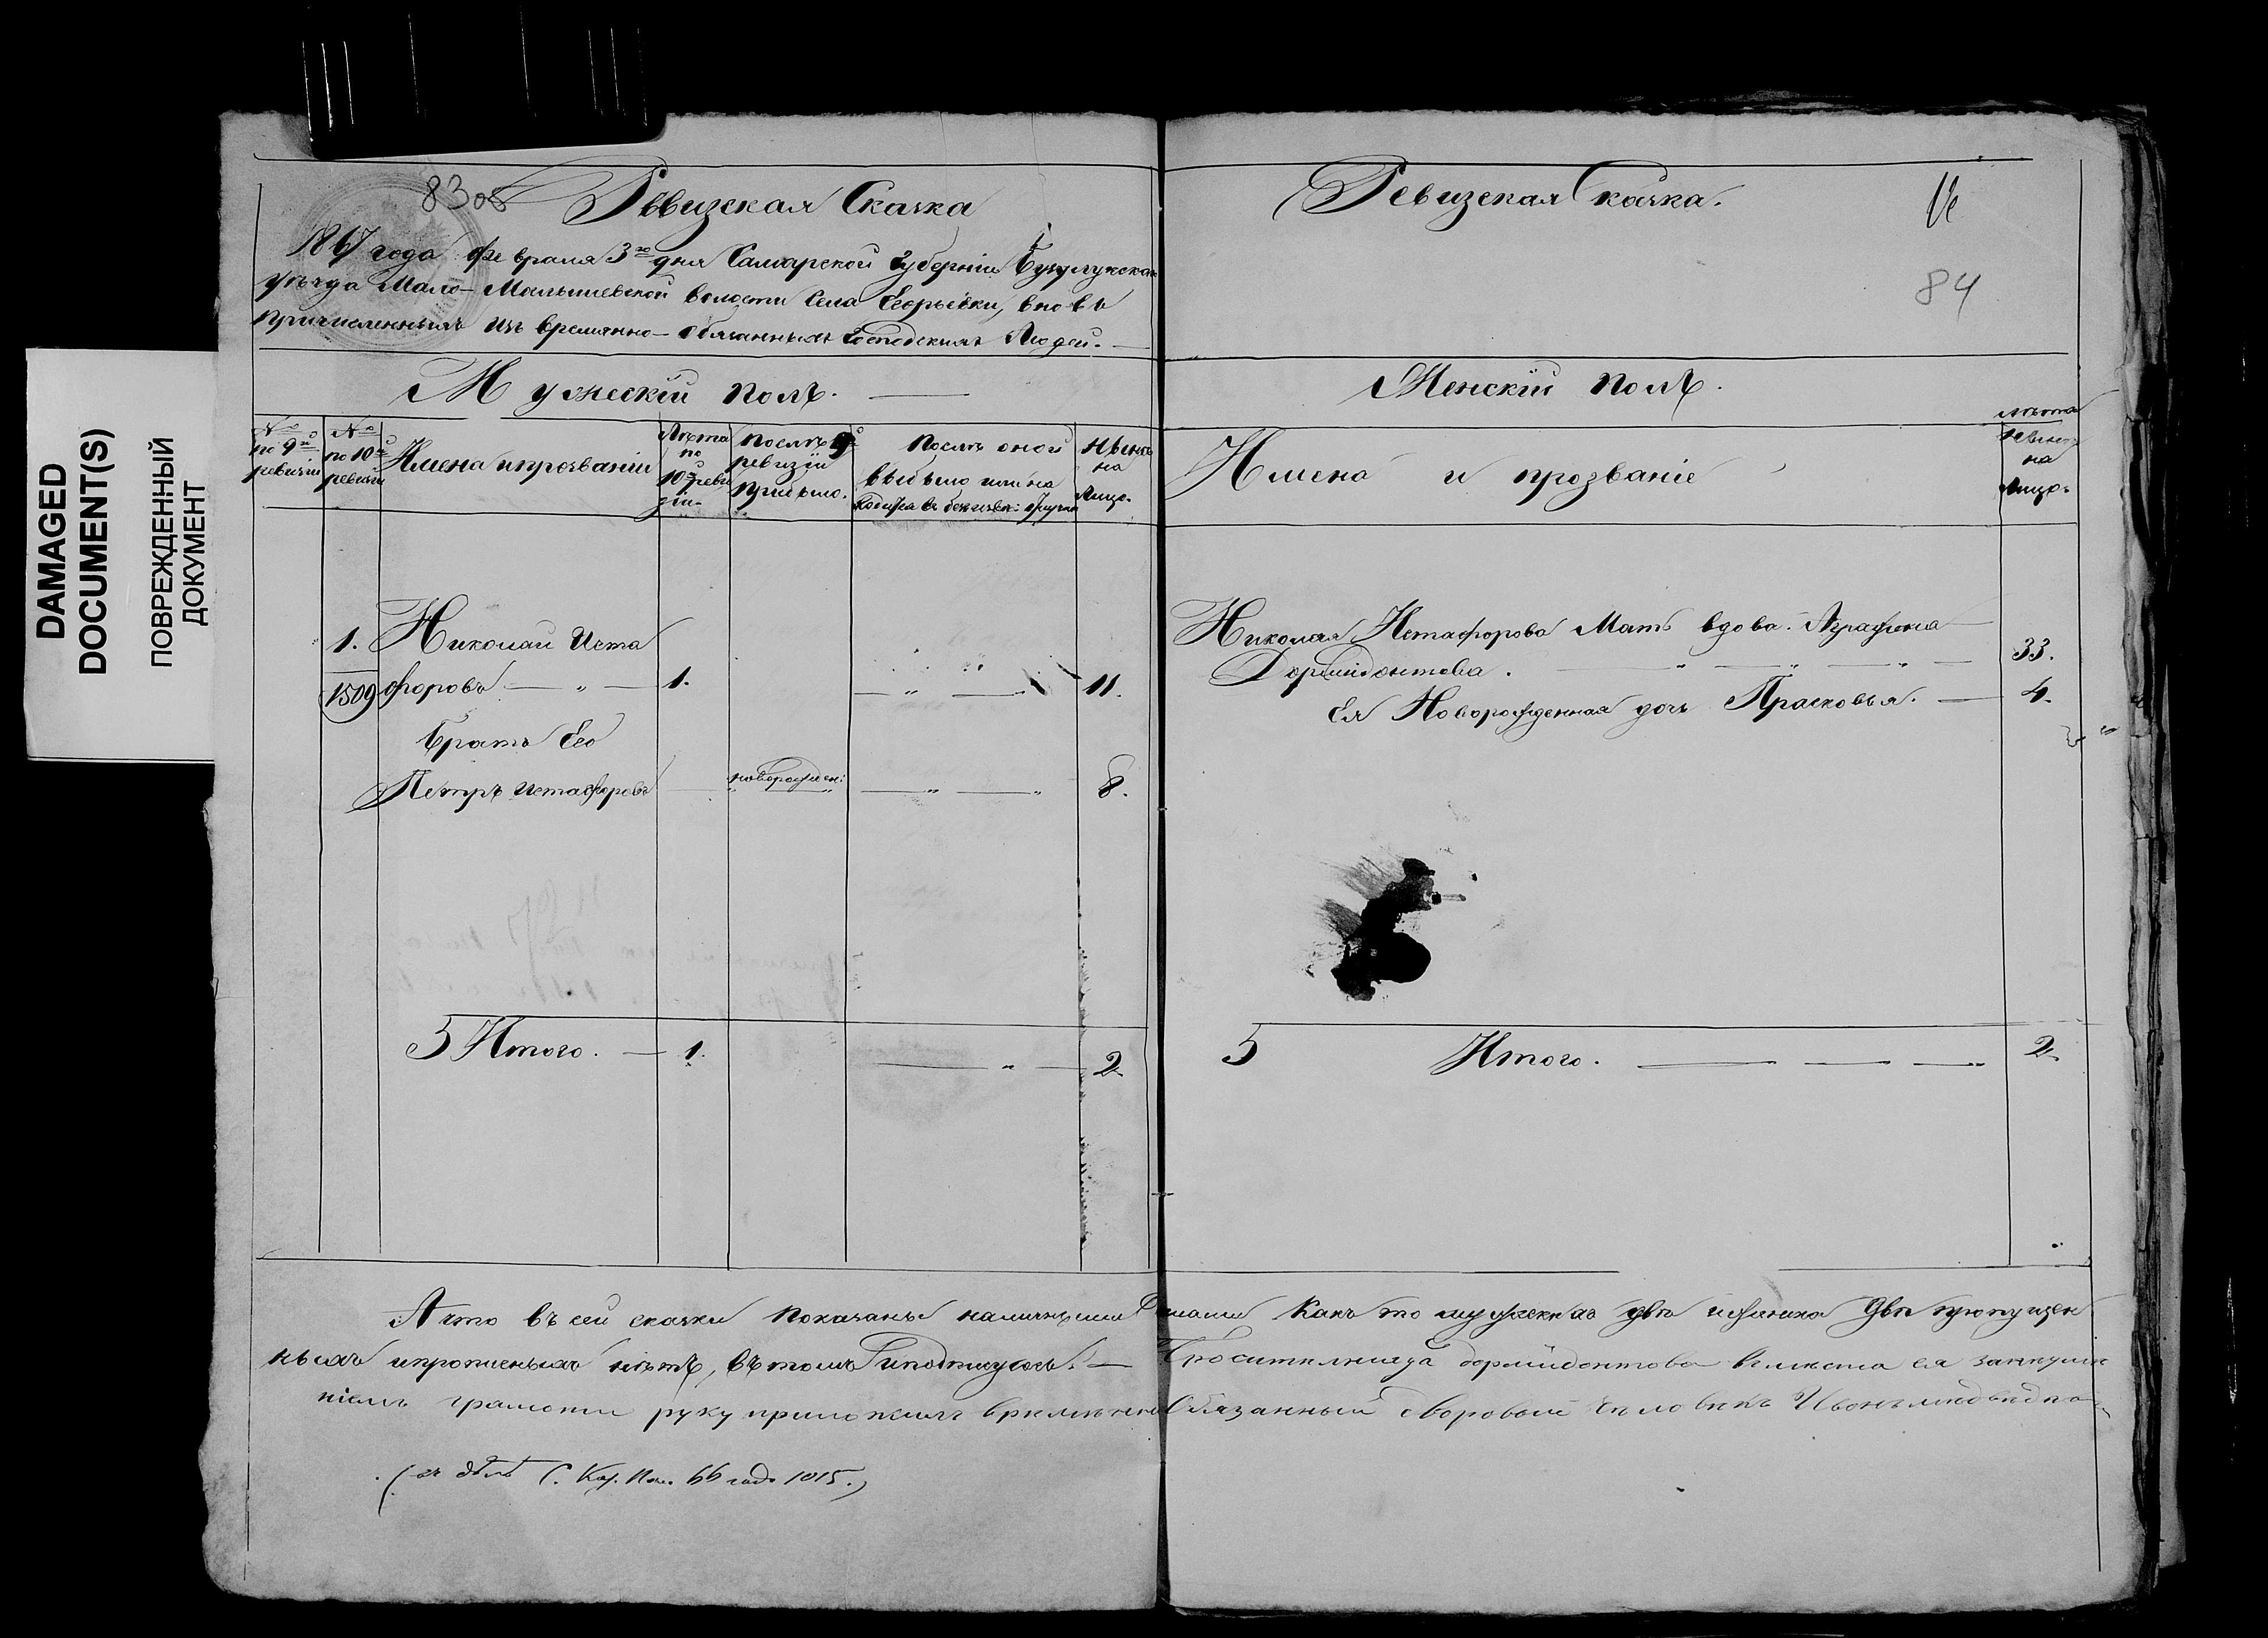 DAMAGED
DOCUMENT(S)
ПОВРЕЖДЕННЫЙ
ДОКУМЕНТ
8308
Ревизская Сказка
1867 года февраля 3го дня Самарской Губерніи Бузулукскаго
уѣзда Мало-Малышевской волости Села Егорьевки, вновь
причисленныхъ изъ временно-обязанныхъ Господскихъ Людей.
Мужескій полъ.
№ по 9й ревизіи
№ по 10й ревизіи
Имена и прозваніи
Лѣта по 10й ревизіи
Послѣ 9й ревизіи прибыло.
Послѣ оной выбыло или на
На лицо.
1. Николай Иста
1509 форовъ — „ — 1. — „ — 11.
Братъ Его
Петръ Истафоровъ новорожден: — „ — „ 8.
Итого. — 1. — „ — 2.
Ревизская Скаска.
84
Женскій полъ.
Имена и прозваніе
лѣта
на
Лицо.
Николая Истафорова Мать вдова Аграфена
Дормидонтова. — „ — „ — „ — 33.
Ея Новорожденная дочь Прасковья. — 4.
Итого. — 2.
А что въ сей сказки показаны наличными душами Какъ то мужескихъ двѣ и женска двѣ пропущен
ныхъ и прописныхъ нѣтъ, въ томъ и подпишусь. — дормидонтова вместа ея
грамоти руку приложилъ временно Обязанный дворовый человекъ
66 года 1015.)